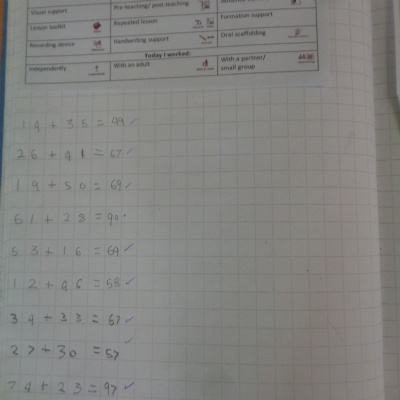 Visual support Pre-teaching/ post-teaching
Lesson toolkit Repeated lesson Formation support
Recording device Handwriting support Oral scaffolding
Today I worked:
Independently With an adult With a partner/
small group
14+35=49
26+41=67
19+50=69
61+28=90
53+16=69
12+46=58
34+33=67
27+30=57
74+23=97